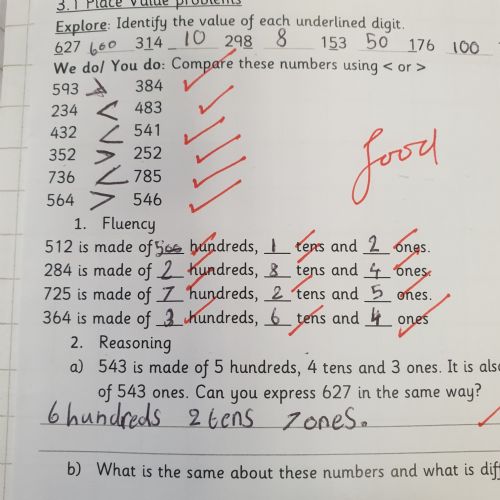 3.1 Place Value problems
Explore: Identify the value of each underlined digit.
627 600 314 10 298 8 153 50 176 100
We do/ You do: Compare these numbers using < or >
593 > 384
234 < 483
432 < 541
352 > 252
736 < 785
564 > 546
Good
1. Fluency
512 is made of 500 hundreds, 1 tens and 2 ones.
284 is made of 2 hundreds, 8 tens and 4 ones.
725 is made of 7 hundreds, 2 tens and 5 ones.
364 is made of 3 hundreds, 6 tens and 4 ones
2. Reasoning
a) 543 is made of 5 hundreds, 4 tens and 3 ones. It is also
of 543 ones. Can you express 627 in the same way?
6 hundreds 2 tens 7 ones.
b) What is the same about these numbers and what is